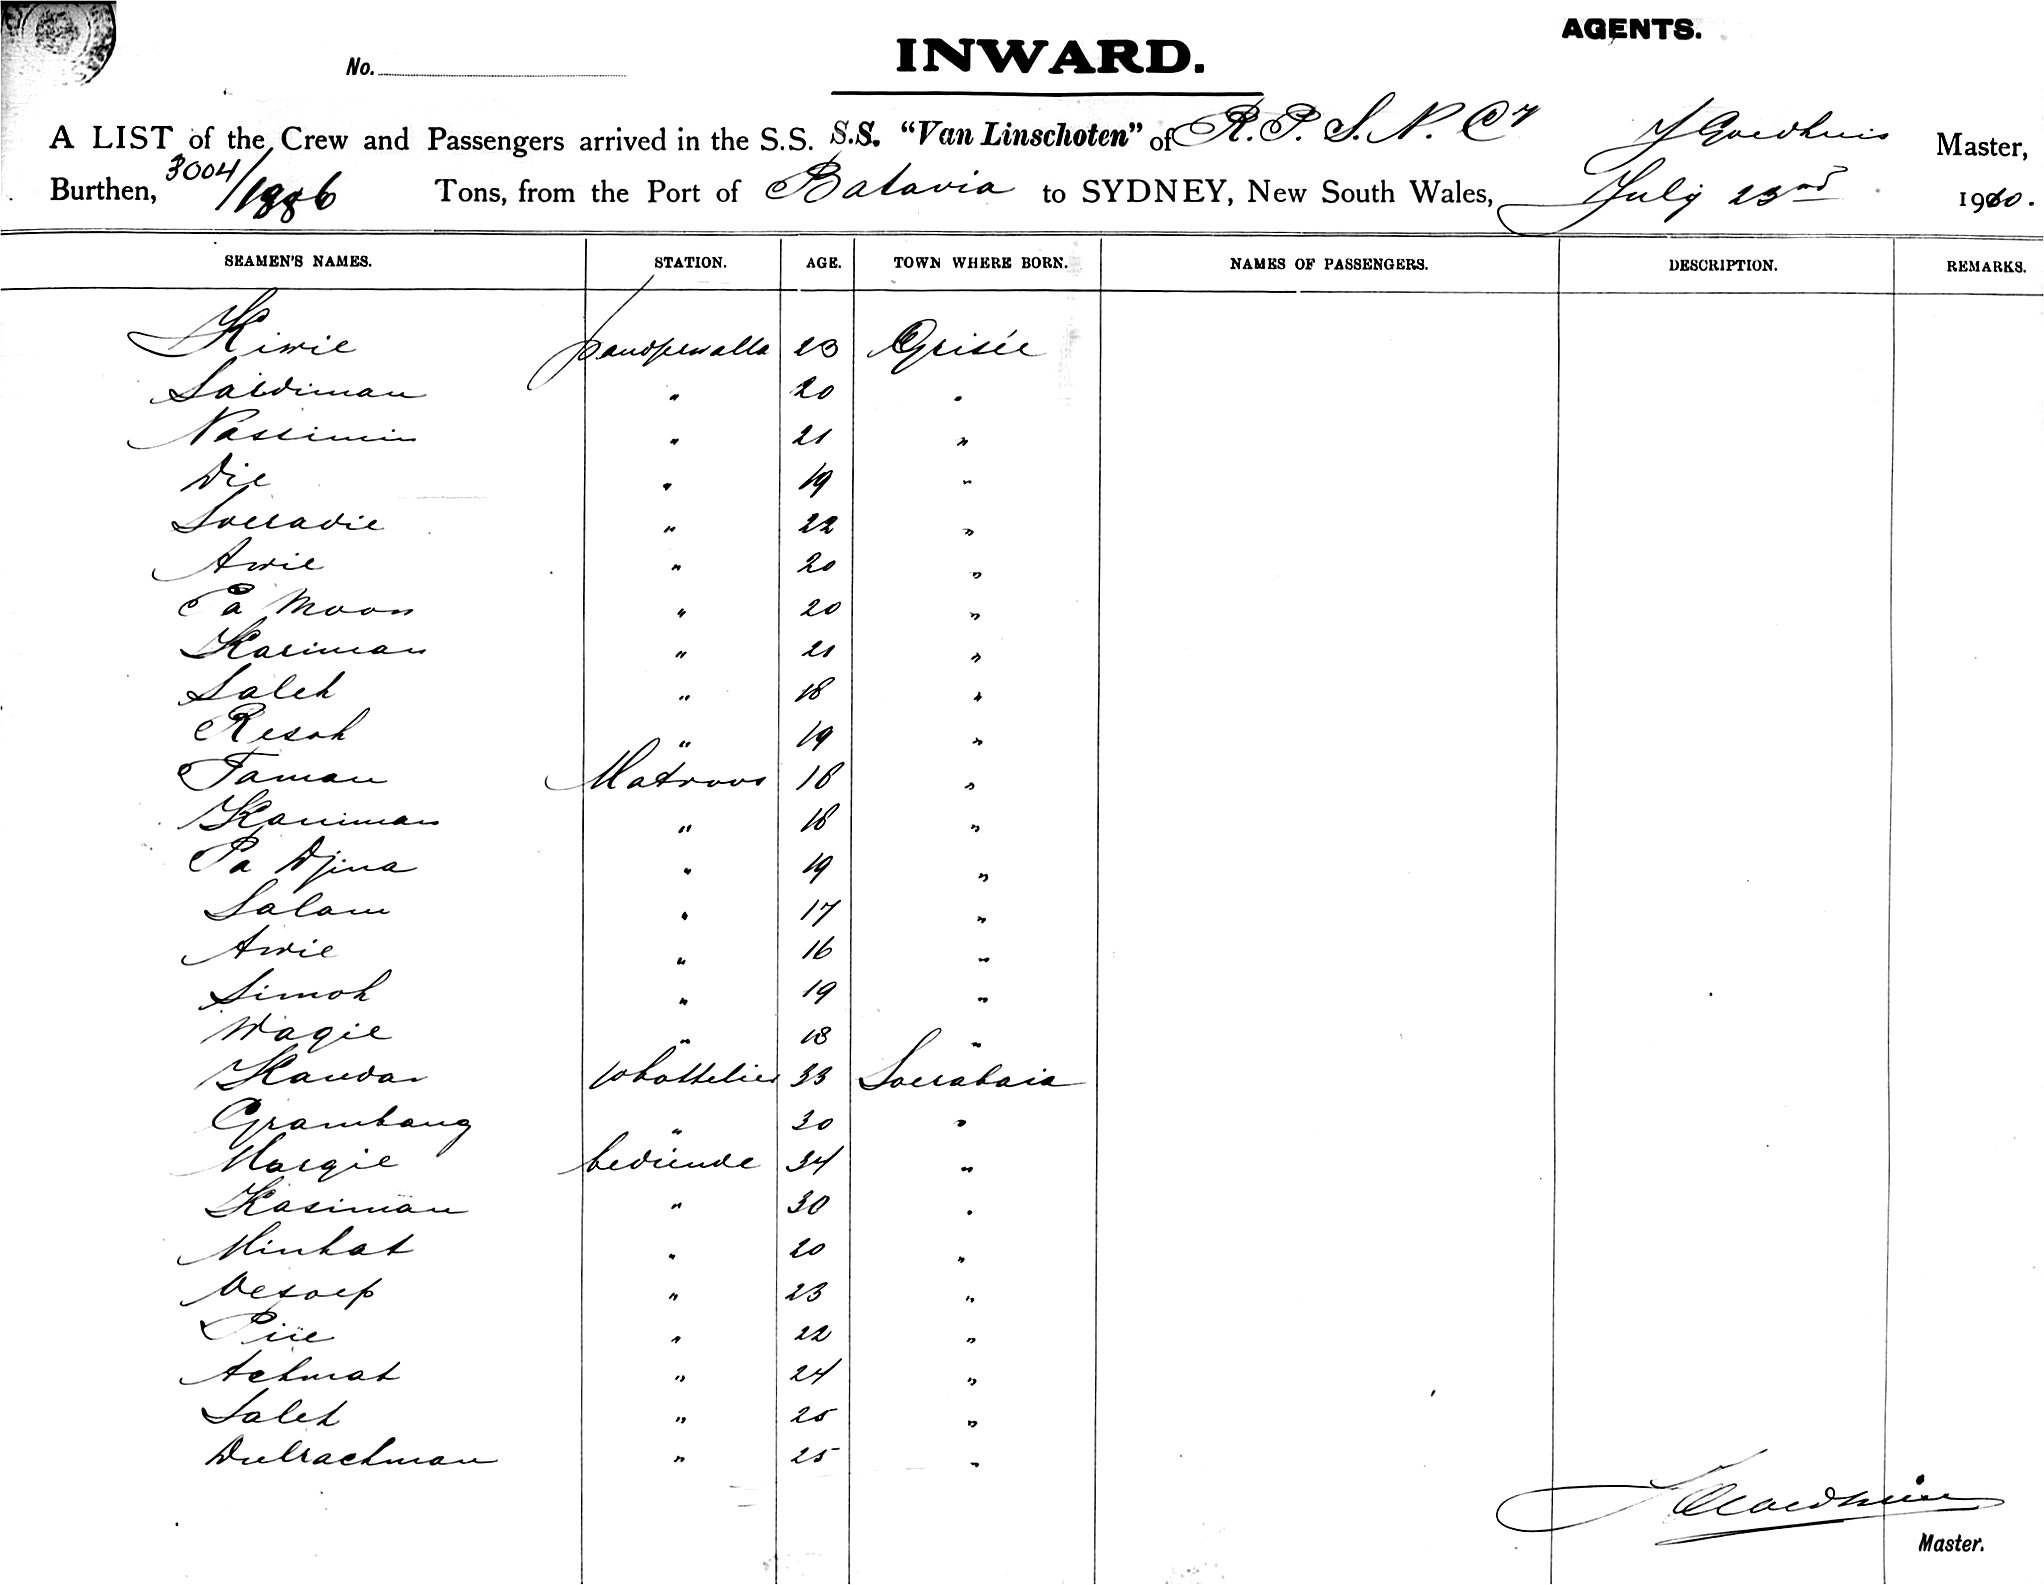 AGENTS.
No. INWARD.
A LIST of the Crew and Passengers arrived in the S.S. S.S. "Van Linschoten" of R. P. S. N. Cy J Goedhuis Master,
Burthen, 3004/1886 Tons, from the Port of Batavia to SYDNEY, New South Wales, July 23rd 1910.
SEAMEN'S NAMES. STATION. AGE. TOWN WHERE BORN. NAMES OF PASSENGERS. DESCRIPTION. REMARKS.
Kiwie 23 Grisée
Sardiman " 20 "
Nassimin " 21 "
Die " 19 "
Soeradie " 22 "
Awie " 20 "
Pa Moon " 20 "
Kariman " 21 "
Saleh " 18 "
Resoh " 19 "
Taman Matroos 18 "
Karriman " 18 "
Pa Djina " 19 "
Salam " 17 "
Awie " 16 "
Simoh " 19 "
Wagie " 18 "
Kandar bottelier 33 Soerabaia
Grambang " 30 "
Margie bediende 34 "
Kasiman " 30 "
Minhat " 20 "
Oesoep " 23 "
Piie " 22 "
Achmat " 24 "
Saleh " 25 "
Dulrachman " 25 "
J Goedhuis
Master.